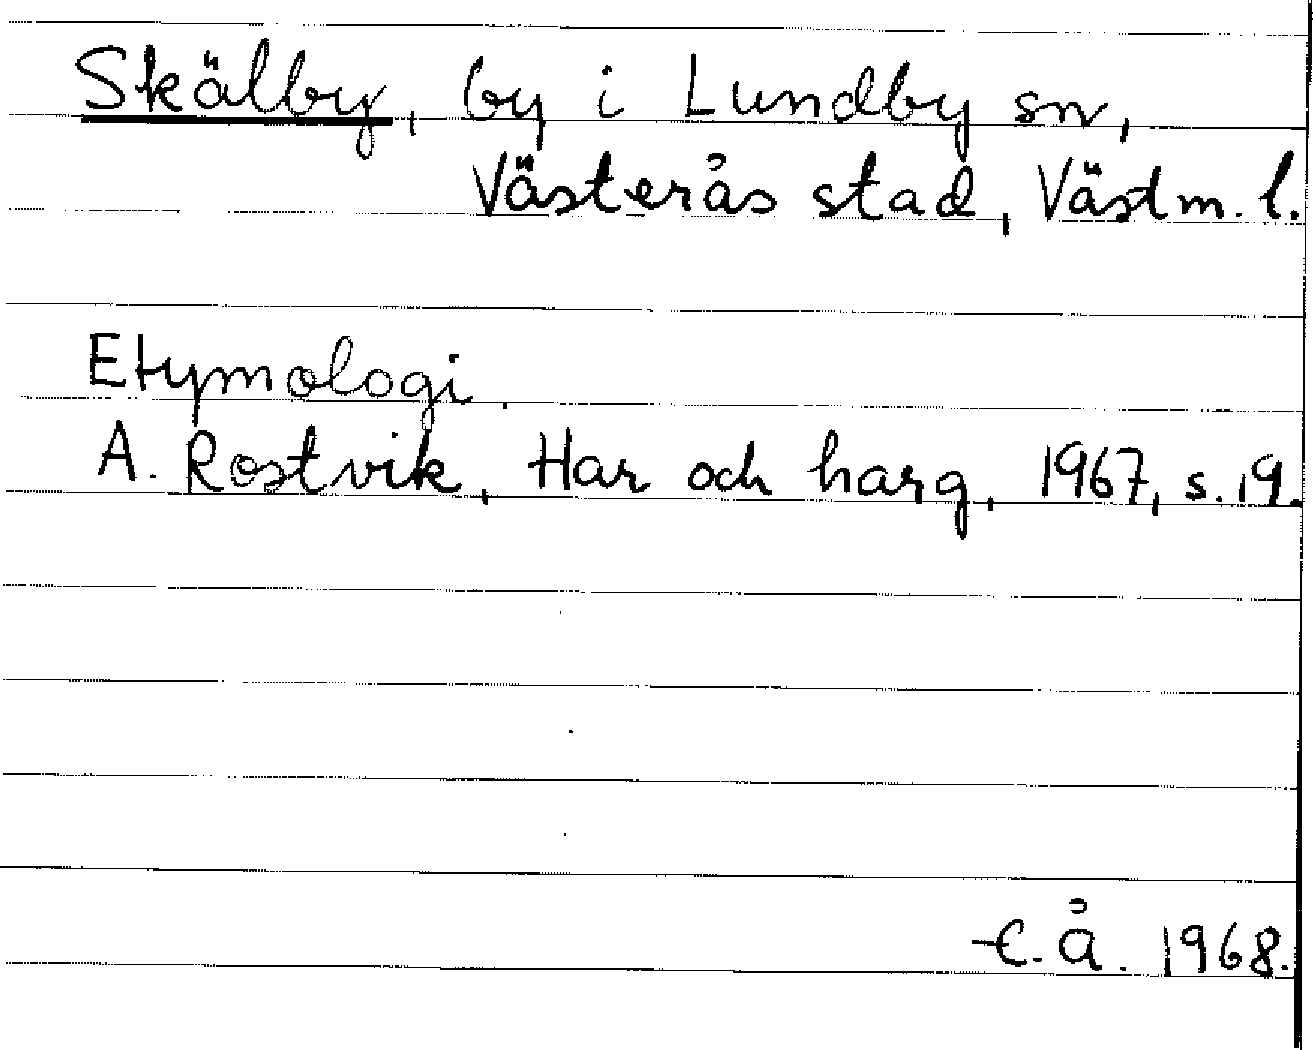 Skälby, by i Lundby sn,
Västerås stad, Västm. l.
Etymologi.
A. Rostvik, Har och harg, 1967, s. 19.
C. Å. 1968.